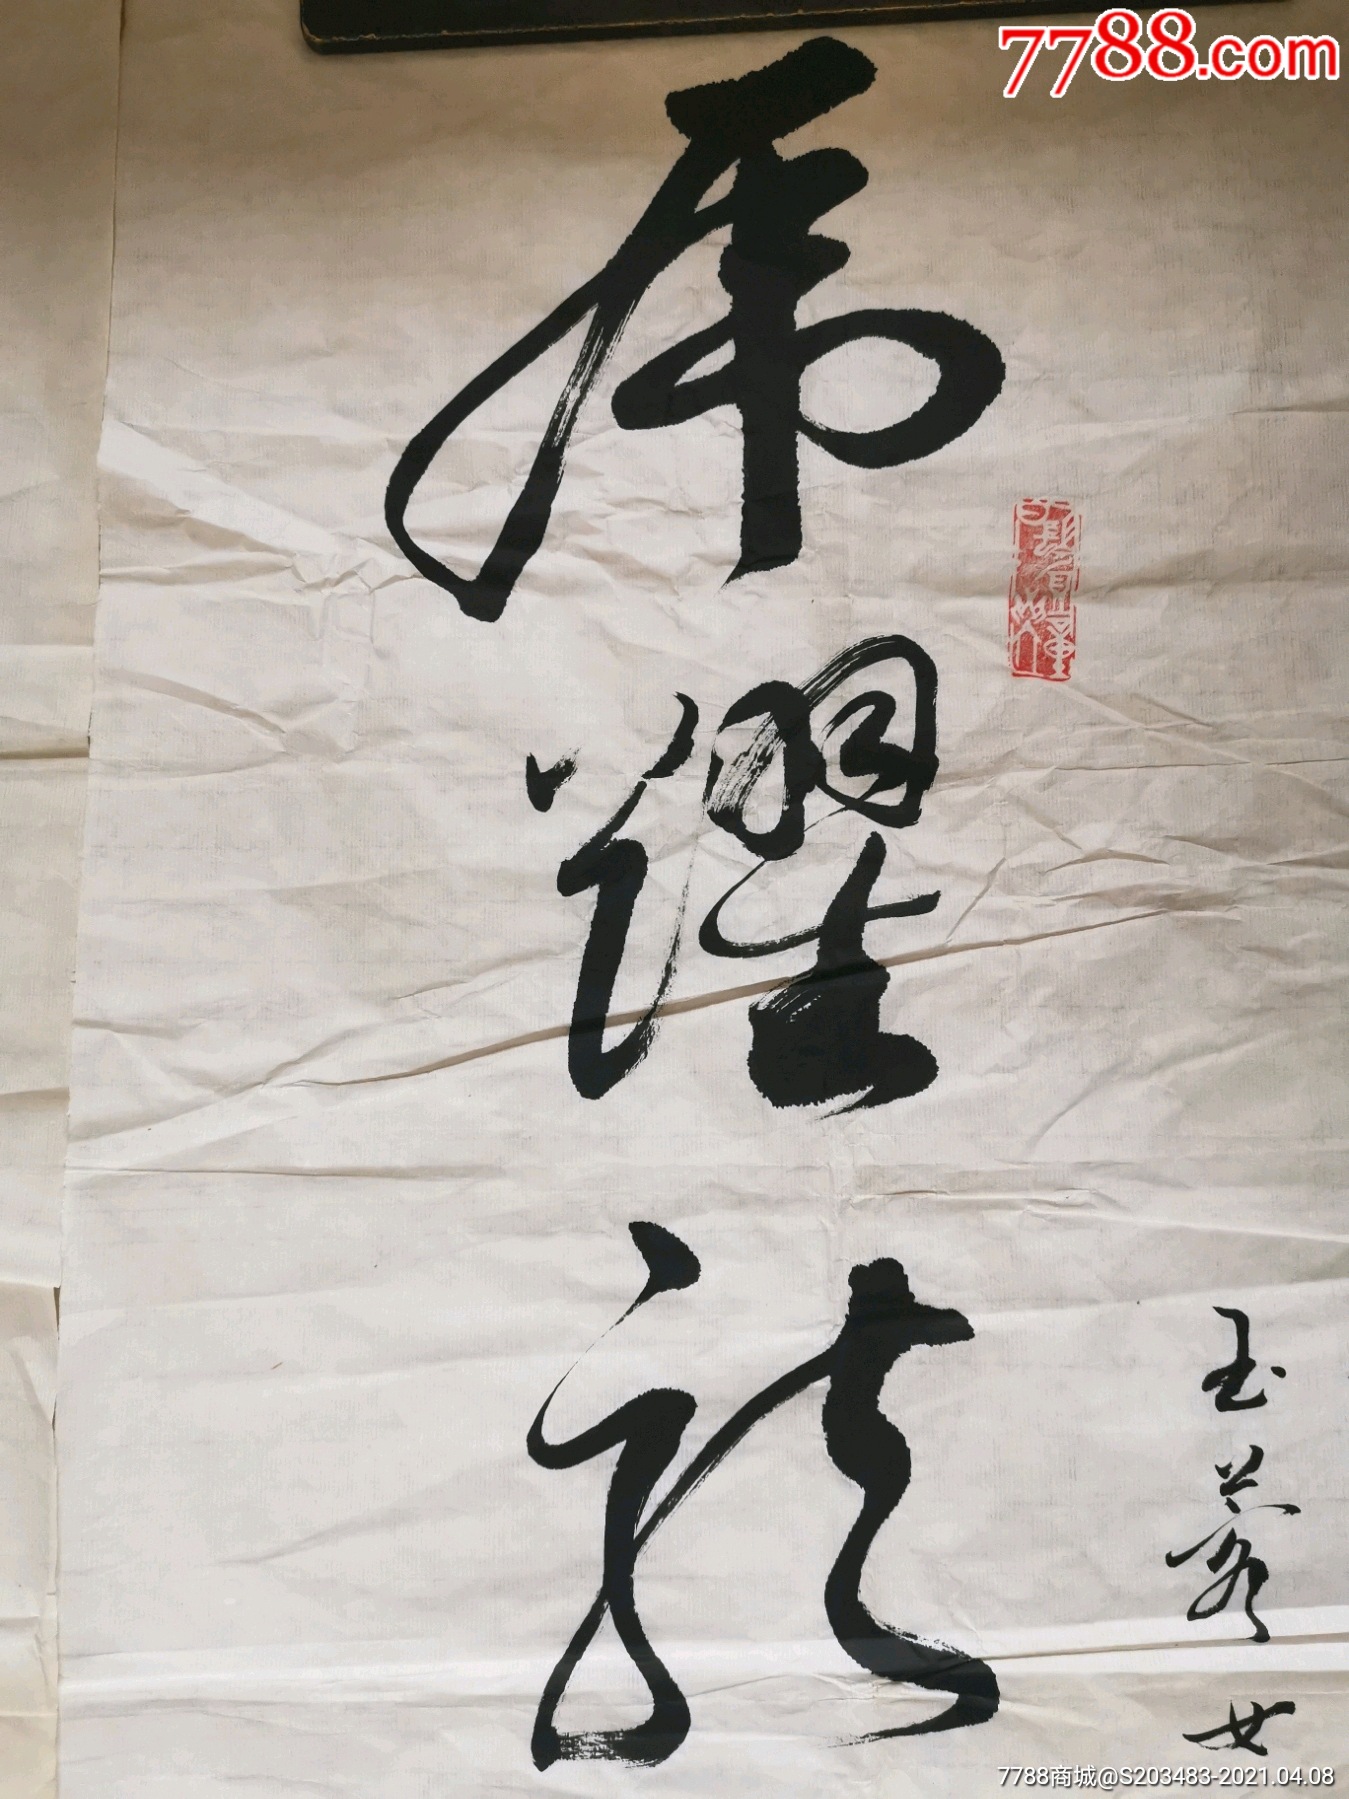 7788.com
虎躍龍
玉蓉女
7788商城@S203483-2021.04.08